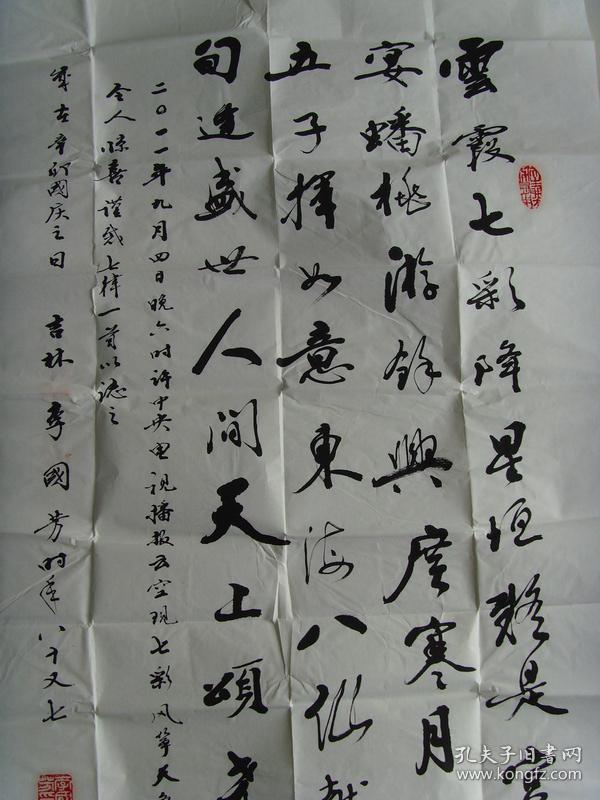 雲霞七彩降星垣疑是
宴蟠桃游餘興廣寒月
五子揮如意東海八仙
句進盛世人間天上頌
二〇一一年九月四日晚六时许中央电视播报云空现七彩风筝天
令人惊喜谨成七律一首以志之
岁在辛卯國庆之日 吉林 李國芳时年八十又七
孔夫子旧书网
www.kongfz.com